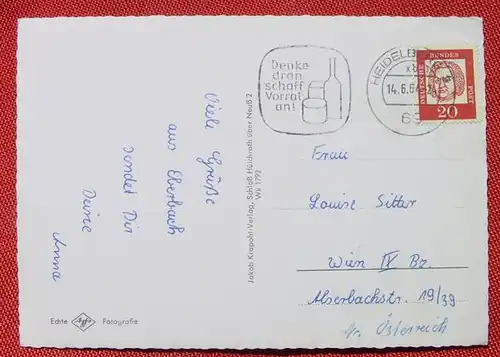 Denke
dran
schaff
Vorrat
an!
HEIDELBE
14.6.64
69
DEUTSCHE BUNDES POST
20
Viele Grüße
aus Eberbach
sendet Dir
Deine
Anna
Jakob Krapohl-Verlag, Schloß Hülchrath über Neuß 2
Wk 1792
Frau
Louise Sitter
Wien IX Bz.
Alserbachstr. 19/39
Österreich
Echte Agfa Fotografie